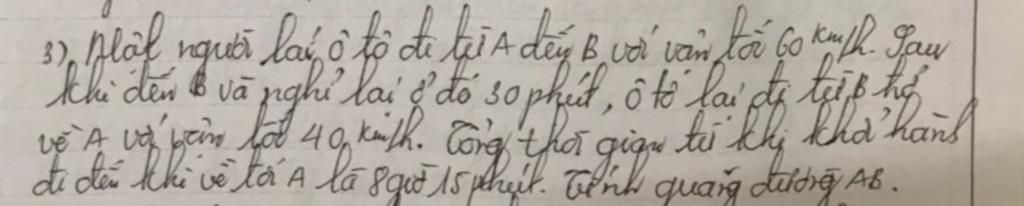 3), Một người lái ô tô đi từ A đến B với vận tốc 60 km/h. Sau
khi đến B và nghỉ lại ở đó 30 phút, ô tô lại đi từ B trở
về A với vận tốc 40 km/h. Tổng thời gian từ khi khởi hành
đi đến khi về tới A là 8 giờ 15 phút. Tính quãng đường AB.